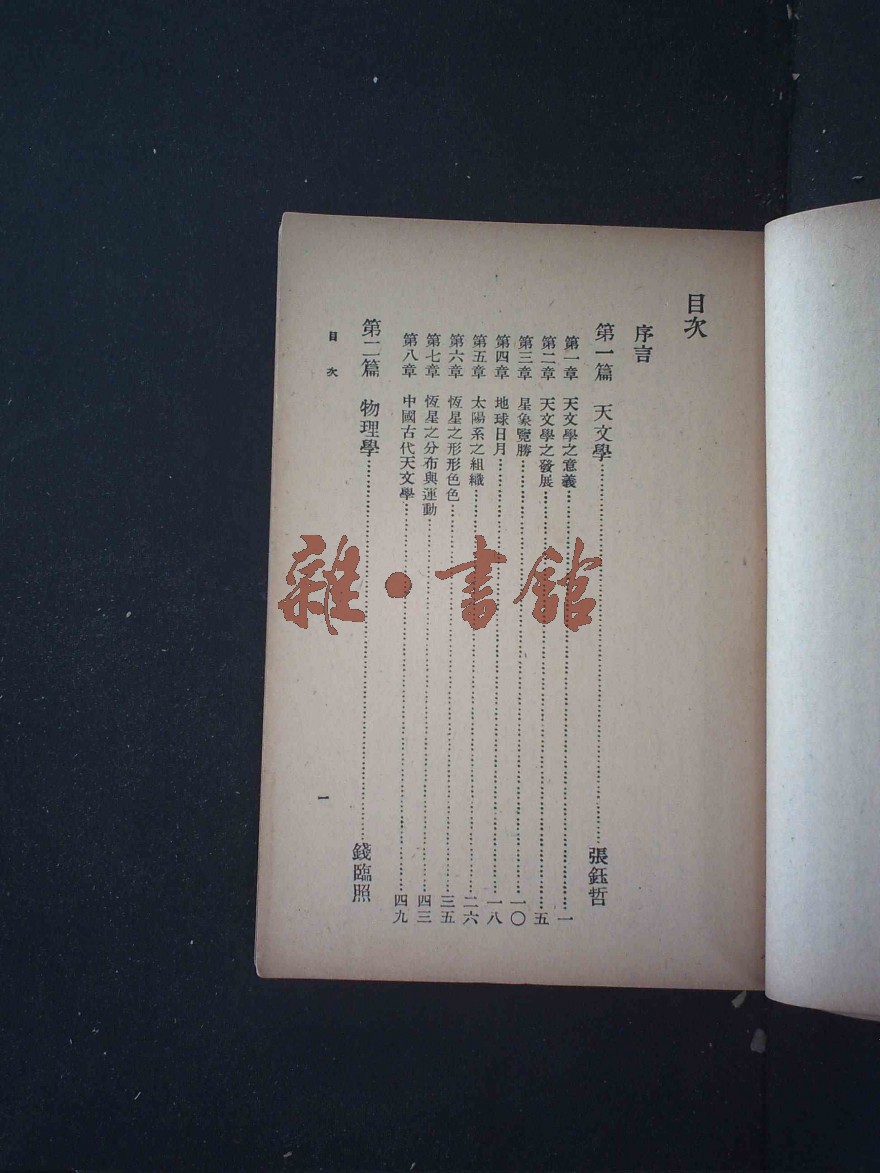 目次
序言
第一篇 天文學……張鈺哲
第一章 天文學之意義……一
第二章 天文學之發展……五
第三章 星象覽勝……一〇
第四章 地球日月……一八
第五章 太陽系之組織……二六
第六章 恆星之形形色色……三五
第七章 恆星之分布與運動……四三
第八章 中國古代天文學……四九
第二篇 物理學……錢臨照
目次 一
雜·書館